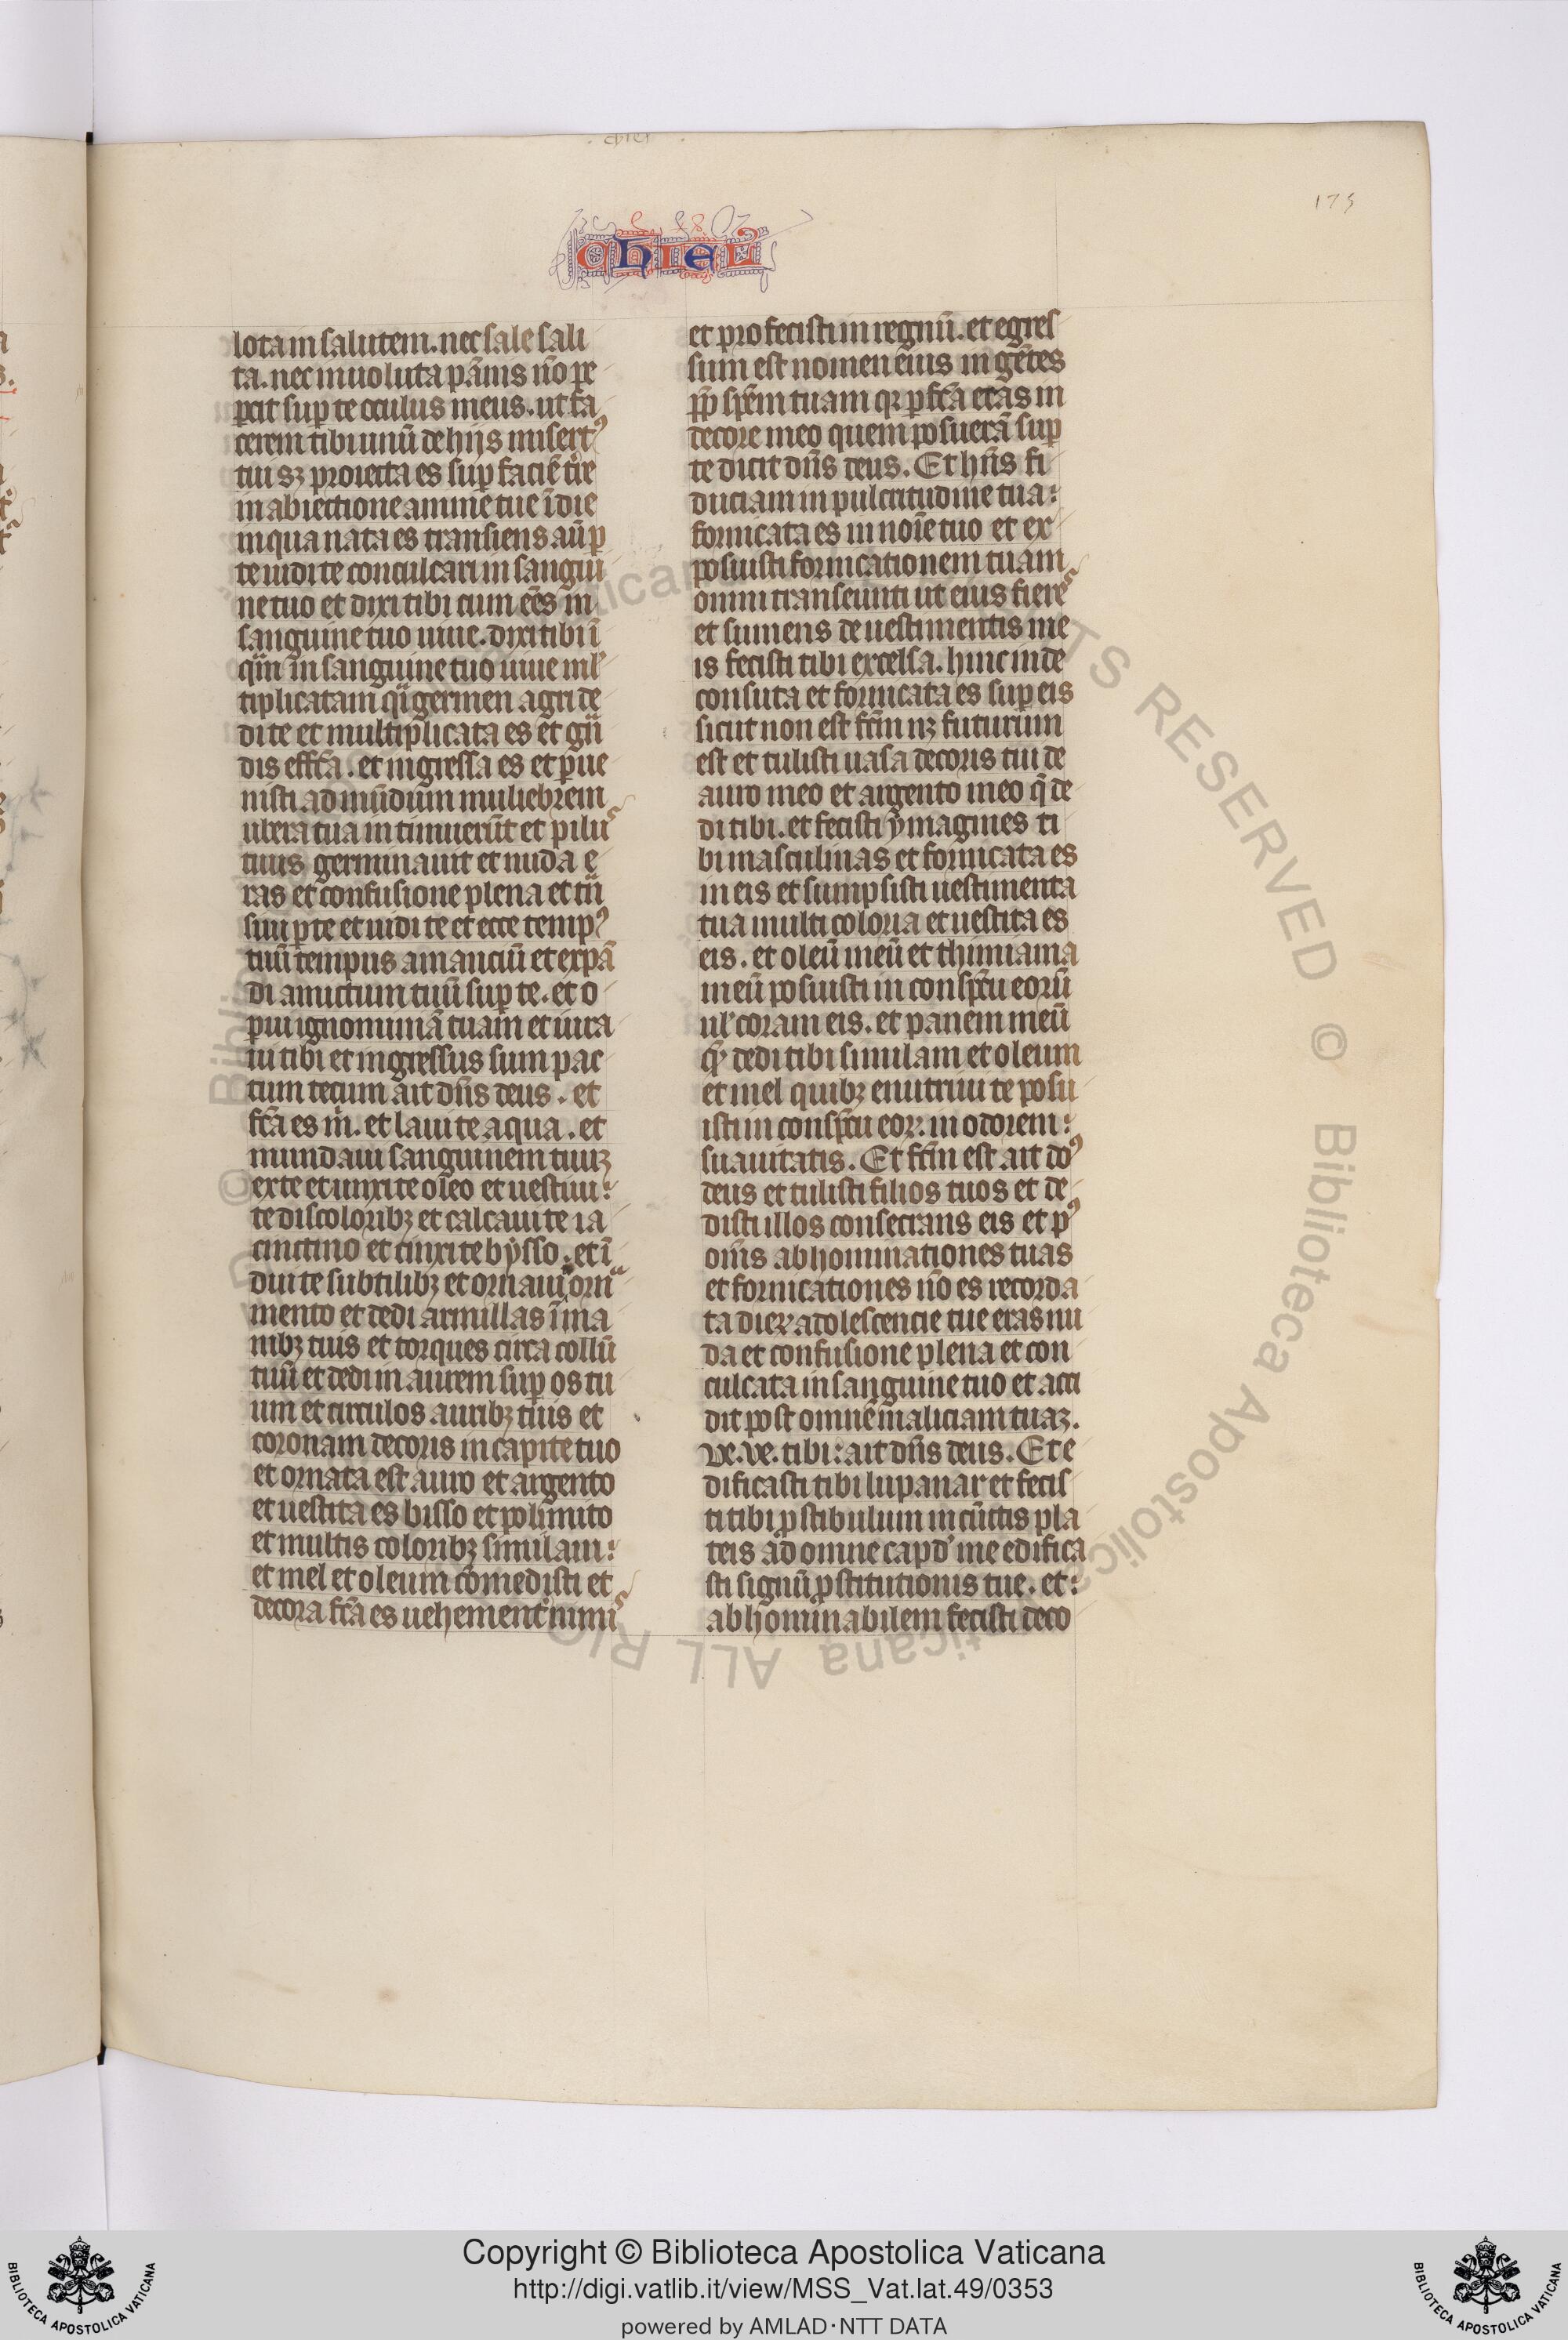 chiel
175
CHIEL
lota in salutem. nec sale sali
ta. nec inuoluta pãnis nõ pe
pcit sup te oculus meus. ut fa
cerem tibi unũ de hijs misertꝰ
tui sꝫ proiecta es sup faciẽ tr̃e
in abiectione anime tue ĩ die
in qua nata es transiens aũ p
te uidi te conculcari in sangui
ne tuo et dixi tibi cum ẽes in
sanguine tuo uiue. dixi tibi ĩ
qm̃ in sanguine tuo uiue ml̕
tiplicatam qͥ germen agri de
di te et multiplicata es et gñ
dis effcã. et ingressa es et pue
nisti ad mũdum muliebrem
ubera tua intimuerũt et pilu᷒
tuus germinauit et nuda e
ras et confusione plena et tñ
siui p te et uidi te et ecce tempꝰ
tuũ tempus amanciũ et expã
di amictum tuũ sup te. et o
pui ignominiã tuam et iura
ui tibi et ingressus sum pac
tum tecum ait dñs deus. et
fcã es m̃. et laui te aqua. et
mundaui sanguinem tuuꝫ
ex te et unxi te oleo et uestiui:
te discoloribꝫ et calcaui te ia
cinctino et cinxi te bysso. et ĩ
dui te subtilibꝫ et ornaui orna
mento et dedi armillas ĩ ma
nibꝫ tuis et torques circa collũ
tuũ et dedi in aurem sup os tu
um et circulos auribꝫ tuis et
coronam decoris in capite tuo
et ornata est auro et argento
et uestita es bisso et polimito
et multis coloribꝫ similam:
et mel et oleum cõmedisti et
decora fcã es uehement̕ nimi᷒
et profecisti in regnũ. et egres
sum est nomen eius in gẽtes
pp̃ spẽm tuam qꝛ pfcã eras in
decore meo quem posuerã sup
te dicit dñs deus. Et hñs fi
duciam in pulcritudine tua:
fornicata es in noĩe tuo et ex
posuisti fornicationem tuam
omni transeunti ut eius fiere᷒
et sumens de uestimentis me
is fecisti tibi excelsa. hinc inde
consuta et fornicata es sup eis
sicut non est fcm̃ nꝫ futurum
est et tulisti uasa decoris tui de
auro meo et argento meo q̃ de
di tibi. et fecisti ymagines ti
bi masculinas et fornicata es
in eis et sumpsisti uestimenta
tua multicoloria et uestita es
eis. et oleũ meũ et thimiama
meũ posuisti in conspc̃u eorũ
ul̕ coram eis. et panem meũ
qͣ dedi tibi similam et oleum
et mel quibꝫ enutriui te posu
isti in conspc̃u eoꝝ. in odorem:
suauitatis. Et fcm̃ est ait doꝰ
deus et tulisti filios tuos et de
disti illos consecrans eis et pꝰ
om̃s abhominationes tuas
et fornicationes nõ es recorda
ta dieꝝ adolescencie tue eras nu
da et confusione plena et con
culcata in sanguine tuo et acci
dit post omnẽ maliciam tuaꝫ.
ve. ve. tibi: ait dñs deus. Et e
dificasti tibi lupanar et fecis
ti tibi pstibulum in cũctis pla
teis ad omne cap d̕ ine edifica
sti signũ pstitutionis tue. et:
abhominabilem fecisti deco
Copyright © Biblioteca Apostolica Vaticana
http://digi.vatlib.it/view/MSS_Vat.lat.49/0353
powered by AMLAD·NTT DATA
BIBLIOTECA APOSTOLICA VATICANA
BIBLIOTECA APOSTOLICA VATICANA